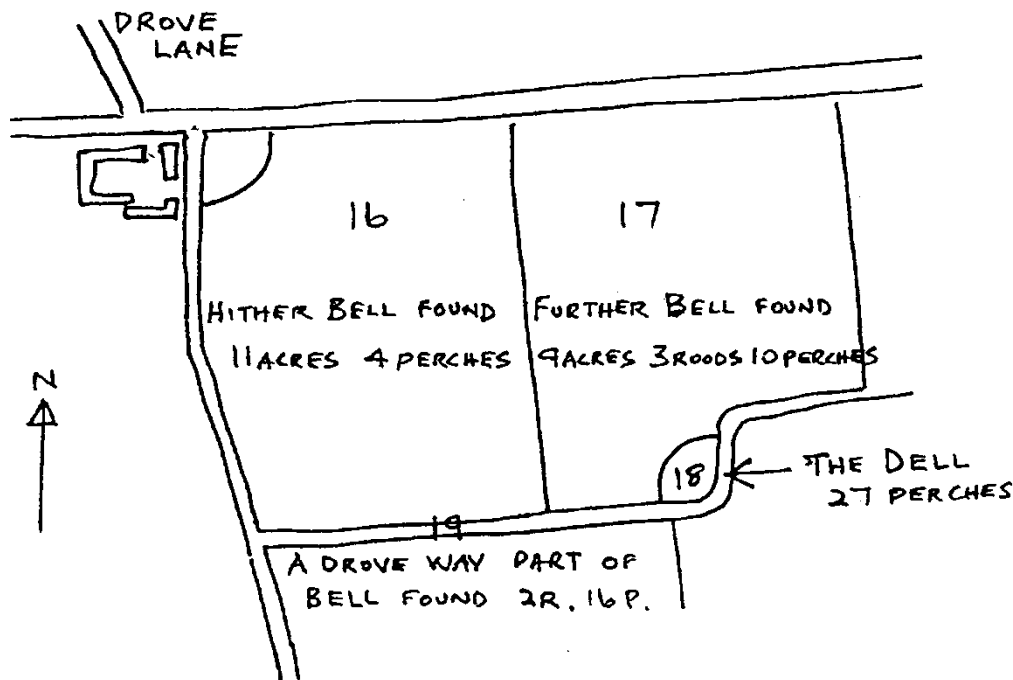 DROVE
LANE
16
17
HITHER BELL FOUND
11 ACRES 4 PERCHES
FURTHER BELL FOUND
9 ACRES 3 ROODS 10 PERCHES
N
18
THE DELL
27 PERCHES
19
A DROVE WAY PART OF
BELL FOUND 2R. 16 P.